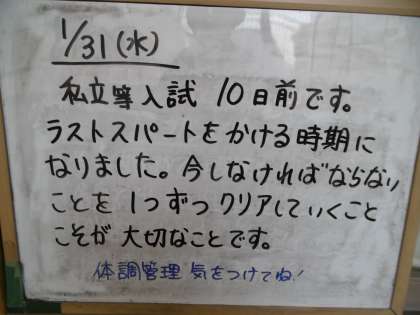 1/31(水)
私立等入試 10日前です。
ラストスパートをかける時期に
なりました。今しなければならない
ことを 1つずつ クリアしていくこと
こそが 大切なことです。
体調管理 気をつけてね!